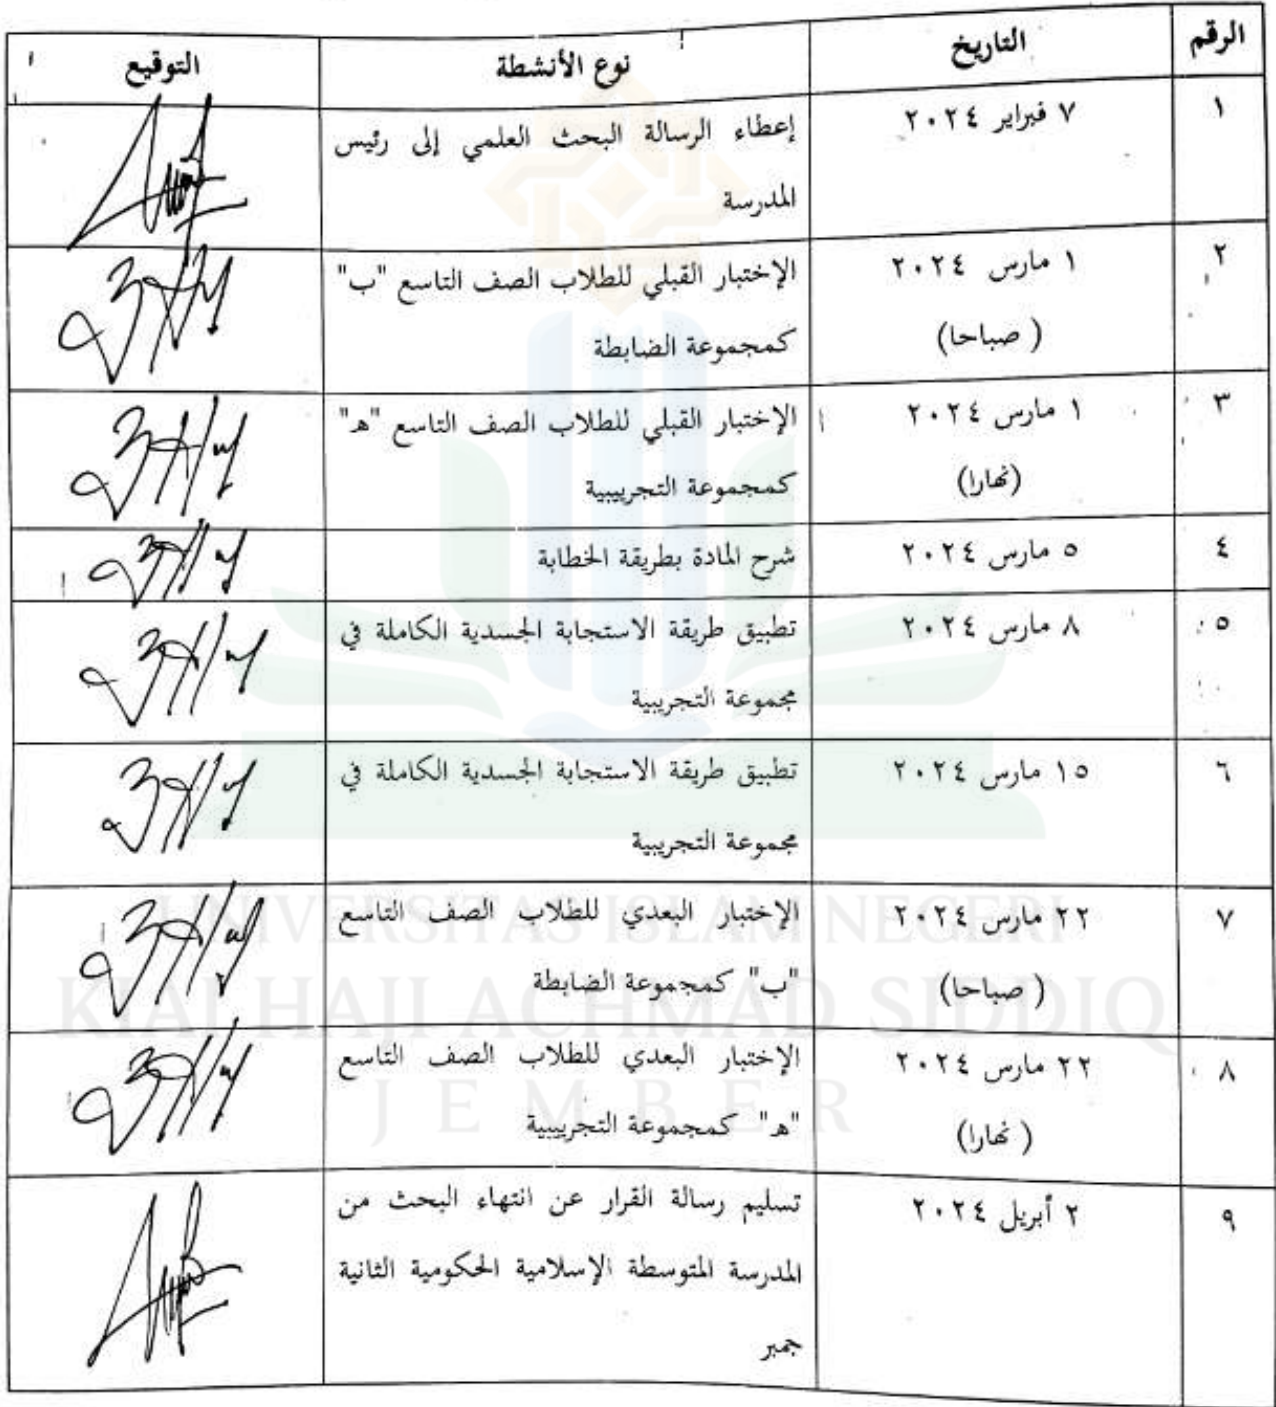 الرقم التاريخ نوع الأنشطة التوقيع
١ ٧ فبراير ٢٠٢٤ إعطاء الرسالة البحث العلمي إلى رئيس
المدرسة
٢ ١ مارس ٢٠٢٤ الإختبار القبلي للطلاب الصف التاسع "ب"
(صباحا) كمجموعة الضابطة
٣ ١ مارس ٢٠٢٤ الإختبار القبلي للطلاب الصف التاسع "هـ"
(نهارا) كمجموعة التجريبية
٤ ٥ مارس ٢٠٢٤ شرح المادة بطريقة الخطابة
٥ ٨ مارس ٢٠٢٤ تطبيق طريقة الاستجابة الجسدية الكاملة في
مجموعة التجريبية
٦ ١٥ مارس ٢٠٢٤ تطبيق طريقة الاستجابة الجسدية الكاملة في
مجموعة التجريبية
٧ ٢٢ مارس ٢٠٢٤ الإختبار البعدي للطلاب الصف التاسع
(صباحا) "ب" كمجموعة الضابطة
٨ ٢٢ مارس ٢٠٢٤ الإختبار البعدي للطلاب الصف التاسع
(نهارا) "هـ" كمجموعة التجريبية
٩ ٢ أبريل ٢٠٢٤ تسليم رسالة القرار عن انتهاء البحث من
المدرسة المتوسطة الإسلامية الحكومية الثانية
جمبر
UNIVERSITAS ISLAM NEGERI
KIAI HAJI ACHMAD SIDDIQ
JEMBER